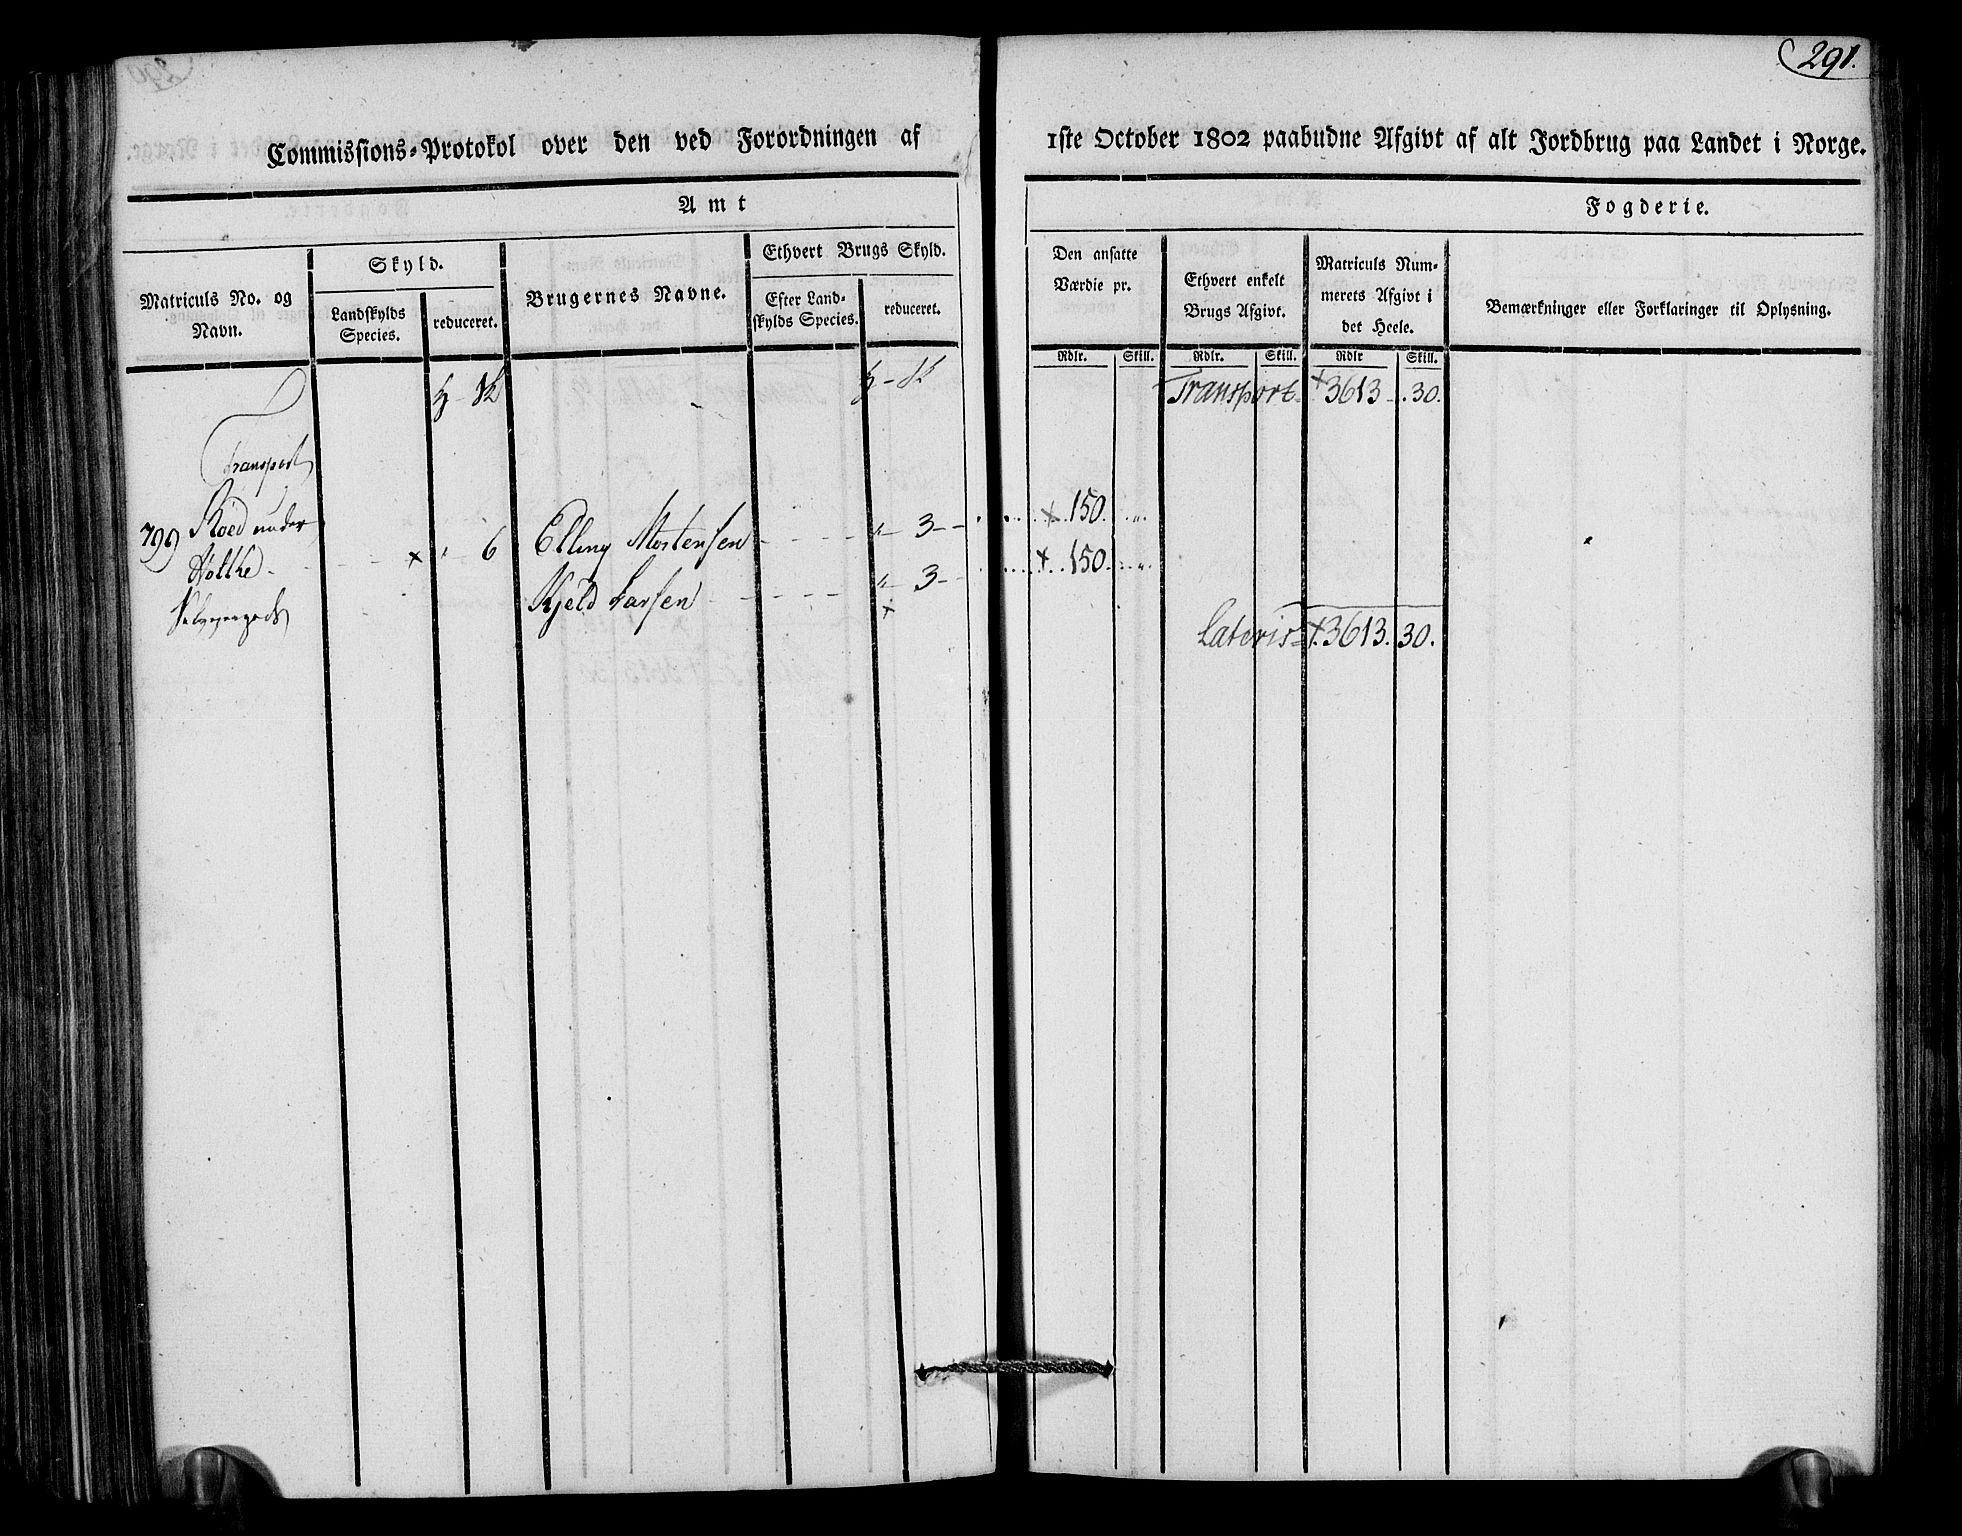 291.
Commissions-Protokol over den ved Forordningen af 1ste October 1802 paabudne Afgivt af alt Jordbrug paa Landet i Norge.
Amt
Fogderie.
Matriculs No. og Navn.
Skyld.
Landskylds Species.
reduceret.
Brugernes Navne.
Ethvert Brugs Skyld.
Efter Landskylds Species.
reduceret.
Den ansatte Værdie pr.
Ethvert enkelt Brugs Afgivt.
Matriculs Nummerets Afgivt i det Heele.
Bemærkninger eller Forklaringer til Oplysning.
Rdlr. Skill. Rdlr. Skill. Rdlr Skill.
Transport 3613 30.
Transport
799 Røed under
Holthe 6
Elling Mortensen 3 150
Kjeld Larsen 3 150
Lateris 3613. 30.